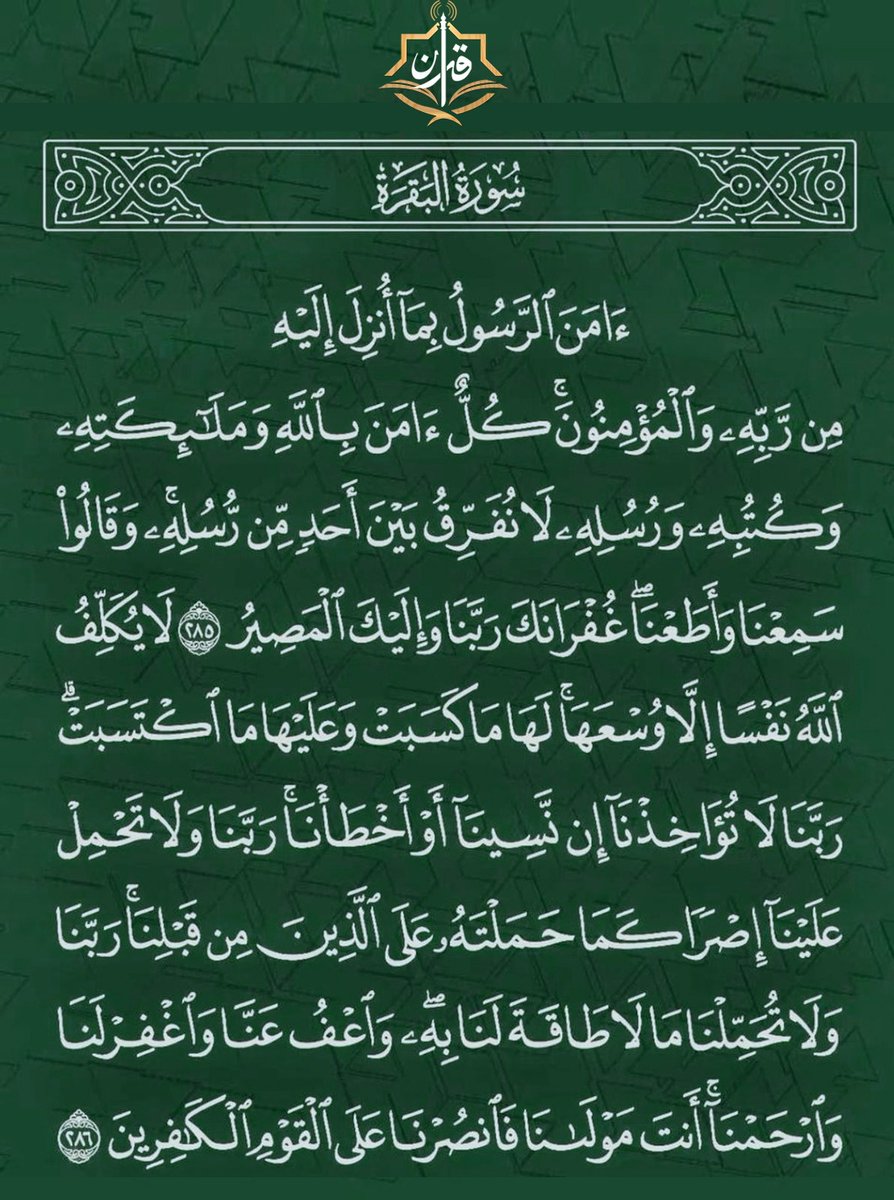 قرآن
سُورَةُ البَقَرَةِ
ءَامَنَ ٱلرَّسُولُ بِمَآ أُنزِلَ إِلَيْهِ
مِن رَّبِّهِۦ وَٱلْمُؤْمِنُونَۚ كُلٌّ ءَامَنَ بِٱللَّهِ وَمَلَٰٓئِكَتِهِۦ
وَكُتُبِهِۦ وَرُسُلِهِۦ لَا نُفَرِّقُ بَيْنَ أَحَدٍ مِّن رُّسُلِهِۦۚ وَقَالُوا۟
سَمِعْنَا وَأَطَعْنَاۖ غُفْرَانَكَ رَبَّنَا وَإِلَيْكَ ٱلْمَصِيرُ ٢٨٥ لَا يُكَلِّفُ
ٱللَّهُ نَفْسًا إِلَّا وُسْعَهَاۚ لَهَا مَا كَسَبَتْ وَعَلَيْهَا مَا ٱكْتَسَبَتْۗ
رَبَّنَا لَا تُؤَاخِذْنَآ إِن نَّسِينَآ أَوْ أَخْطَأْنَاۚ رَبَّنَا وَلَا تَحْمِلْ
عَلَيْنَآ إِصْرًا كَمَا حَمَلْتَهُۥ عَلَى ٱلَّذِينَ مِن قَبْلِنَاۚ رَبَّنَا
وَلَا تُحَمِّلْنَا مَا لَا طَاقَةَ لَنَا بِهِۦۖ وَٱعْفُ عَنَّا وَٱغْفِرْ لَنَا
وَٱرْحَمْنَآۚ أَنتَ مَوْلَىٰنَا فَٱنصُرْنَا عَلَى ٱلْقَوْمِ ٱلْكَٰفِرِينَ ٢٨٦